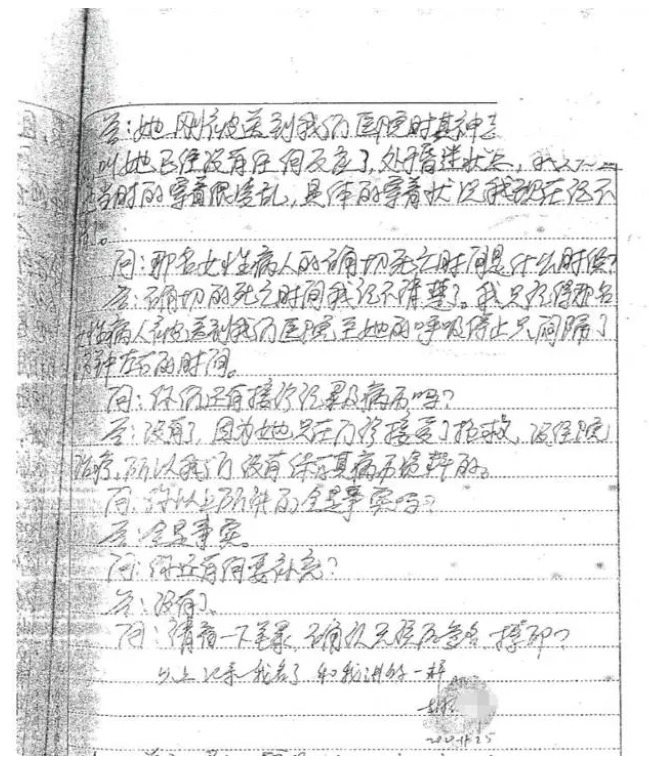 答:她刚被送到我们医院时其神
叫她已经没有任何反应了,处于昏迷状态,
当时的穿着很凌乱,具体的穿着状况我现在记不
问:那名女性病人的确切死亡时间是什么时候?
答:确切的死亡时间我记不清楚了。我只记得那名
性病人被送到我们医院至她的呼吸停止只间隔了
钟左右的时间。
问:你们还有接诊记录及病历吗?
答:没有了,因为她只在门诊接受了抢救,没住院
治疗,所以我们没有保存其病历资料的。
问:你以上所讲的全是事实吗?
答:全是事实。
问:你还有何要补充?
答:没有了。
问:请看一下笔录,确认无误后签名、捺印?
以上记录我看了和我讲的一样